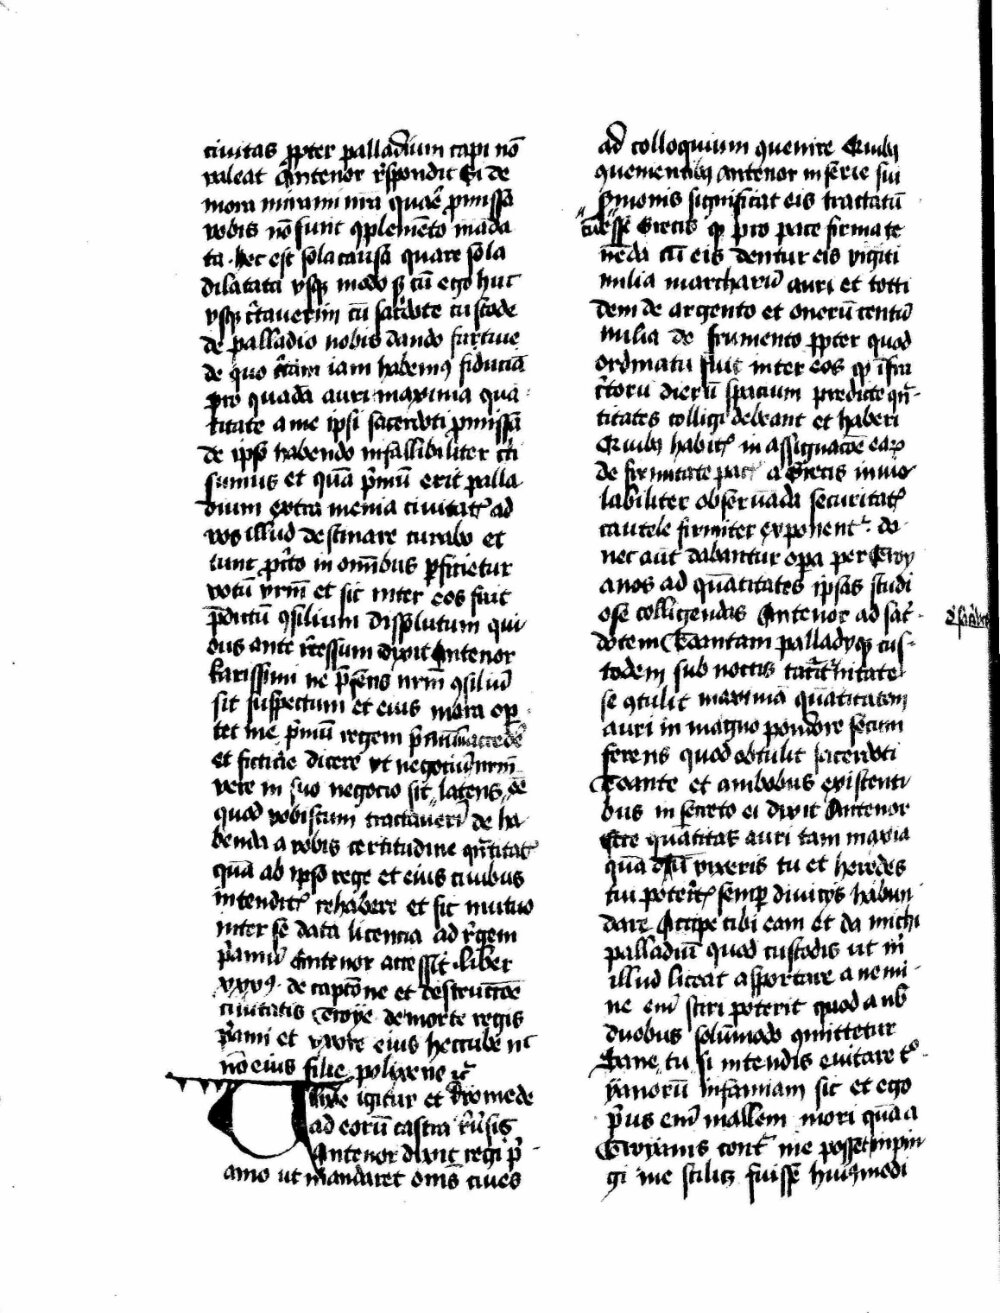 ciuitas ꝓpter palladium capi nō
valeat Antenor r̄spondit Si de
mora miramini quare ꝓmissa
vobis nō sunt ꝯplemēto māda
ta · hec est sola causa quare sola
dilatata vsqꝫ modo qꝫ cū ego huc
vsqꝫ tr̄tauerim cū sac̄dote custode
de palladio nobis dando furtiue
de quo etiam iam habemꝰ fiduciā
pro quadā auri maxima qua
titate a me ipsi sacerdoti ꝓmissa
de ipso habendo infallibiliter c̄ti
sumus et quā p̄mū erit palla
dium extra menia ciuitatꝭ ad
vos illud destinare curabo et
tunc p̄cto in omībus ꝑficietur
votū vr̄m et sic inter eos fuit
p̄dictū ꝯsilium dissolutum qui
bus ante r̄cessum dixit Antenor
karissimi ne p̄sens nr̄m ꝯsiliū
sit suspectum et eius mora opo
tet me p̄mū regem p̄amū accede
et fictitie dicere vt negociū nr̄m
vere in suo negocio sit latens ee
quod vobiscum tractauerī de ha
benda a vobis certitudine qn̄titatꝭ
quā ab ipso rege et eius ciuibus
intenditꝭ rehabere et sic mutuo
inter se data licencia ad r̄gem
p̄amū Antenor accessit · liber
xxxꝰ · de captōne et destructōe
ciuitatis Troye de morte regis
p̄ami et vxore eius heccube nc̄
nō eius filie polixene ⁊c̄
Unde igitur et Diomede
ad eorū castra r̄uersis
Antenor dixit regi p̄
amo ut mandaret om̄s ciues
ad colloquium ꝯuenire Quibꝫ
ꝯuenientibꝫ Antenor in serie sui
s̄monis significat eis tractatū
esse Grecis qꝫ pro pace firma te
nēda cū eis dentur eis viginti
milia marcharū auri et totti
dem de argento et onerū centū
milia de frumento ꝓpter quod
ordinatū fuit inter eos qꝫ īfra
c̄torū dierū spacium predicte qn̄
titates colligi debeant et haberi
Quibꝫ habitꝭ in assignacōe eaꝝ
de firmitate pacꝭ a Grecis inuio
labiliter obseruāda securitatꝭ
cautele firmiter exponentr̄ · do
nec aut̄ dabantur opa per Troy
anos ad quātitates ipsas studi
ose colligendas Antenor ad sac̄
dotem Thoantam palladyqꝫ cus
todem sub noctis taciturnitate
se ꝯtulit maximā quātitatem
auri in magno pondere secum
ferens quod obtulit sacerdoti
Thoante et ambobus existenti
bus in secreto ei dixit Antenor
Ecce quātitas auri tam maxia
quā dū vixeris tu et heredes
tui poteritꝭ semꝑ diuicijs habun
dare Accipe tibi eam et da michi
palladiū quod custodis ut m̄
illud liceat asportare a nemi
ne em̄ sciri poterit quod a nob̄
duobus solūmodo ꝯmittetur
Sane tu si intendis euitare tro
yanorū infamiam sic et ego
p̄us em̄ mallem mori quā a
Troyanis contr̄ me posset inpin
gi me scilicꝫ fuisse huiꝰmodi